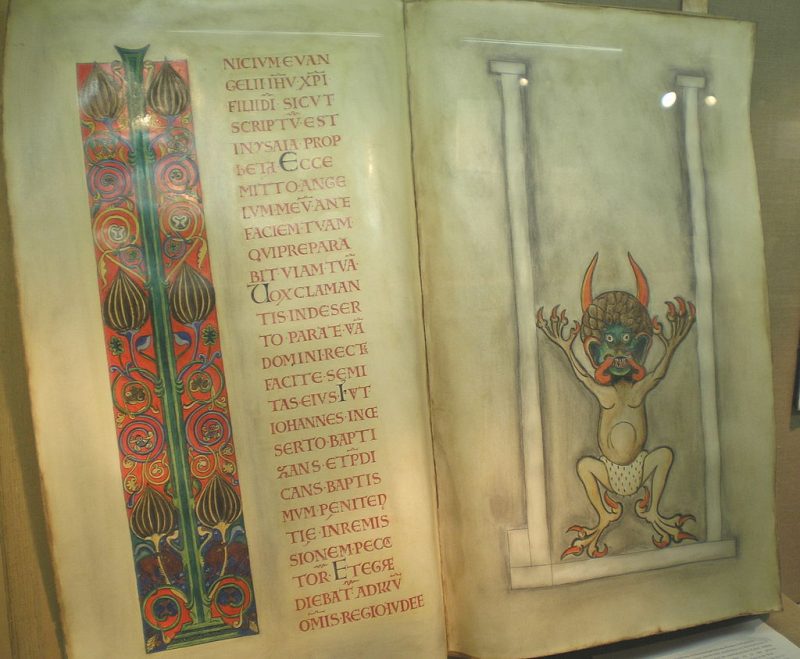 NICIVM EVAN
GELII IHV·XPI
FILII DI· SICVT
SCRIPTV·EST
INYSAIA·PROP
hETA ECCE
MITTO·ANGE
LVM·MEVANTE
FACIEM·TVAM·
QVIPREPARA
BIT VIAM·TVA·
UOX CLAMAN
TIS·INDESER
TO PARATE·VA
DOMINI·RECT
FACITE·SEMI
TAS·EIVS·IVT
IOHANNES·IN
SERTO·BAPTI
ZANS·ETPDI
CANS·BAPTIS
MVM PENITEN
TIE·INREMIS
SIONEM·PECC
TOR·ETEGR
DIEBAT·AD
OMIS·REGIO·IVDEE